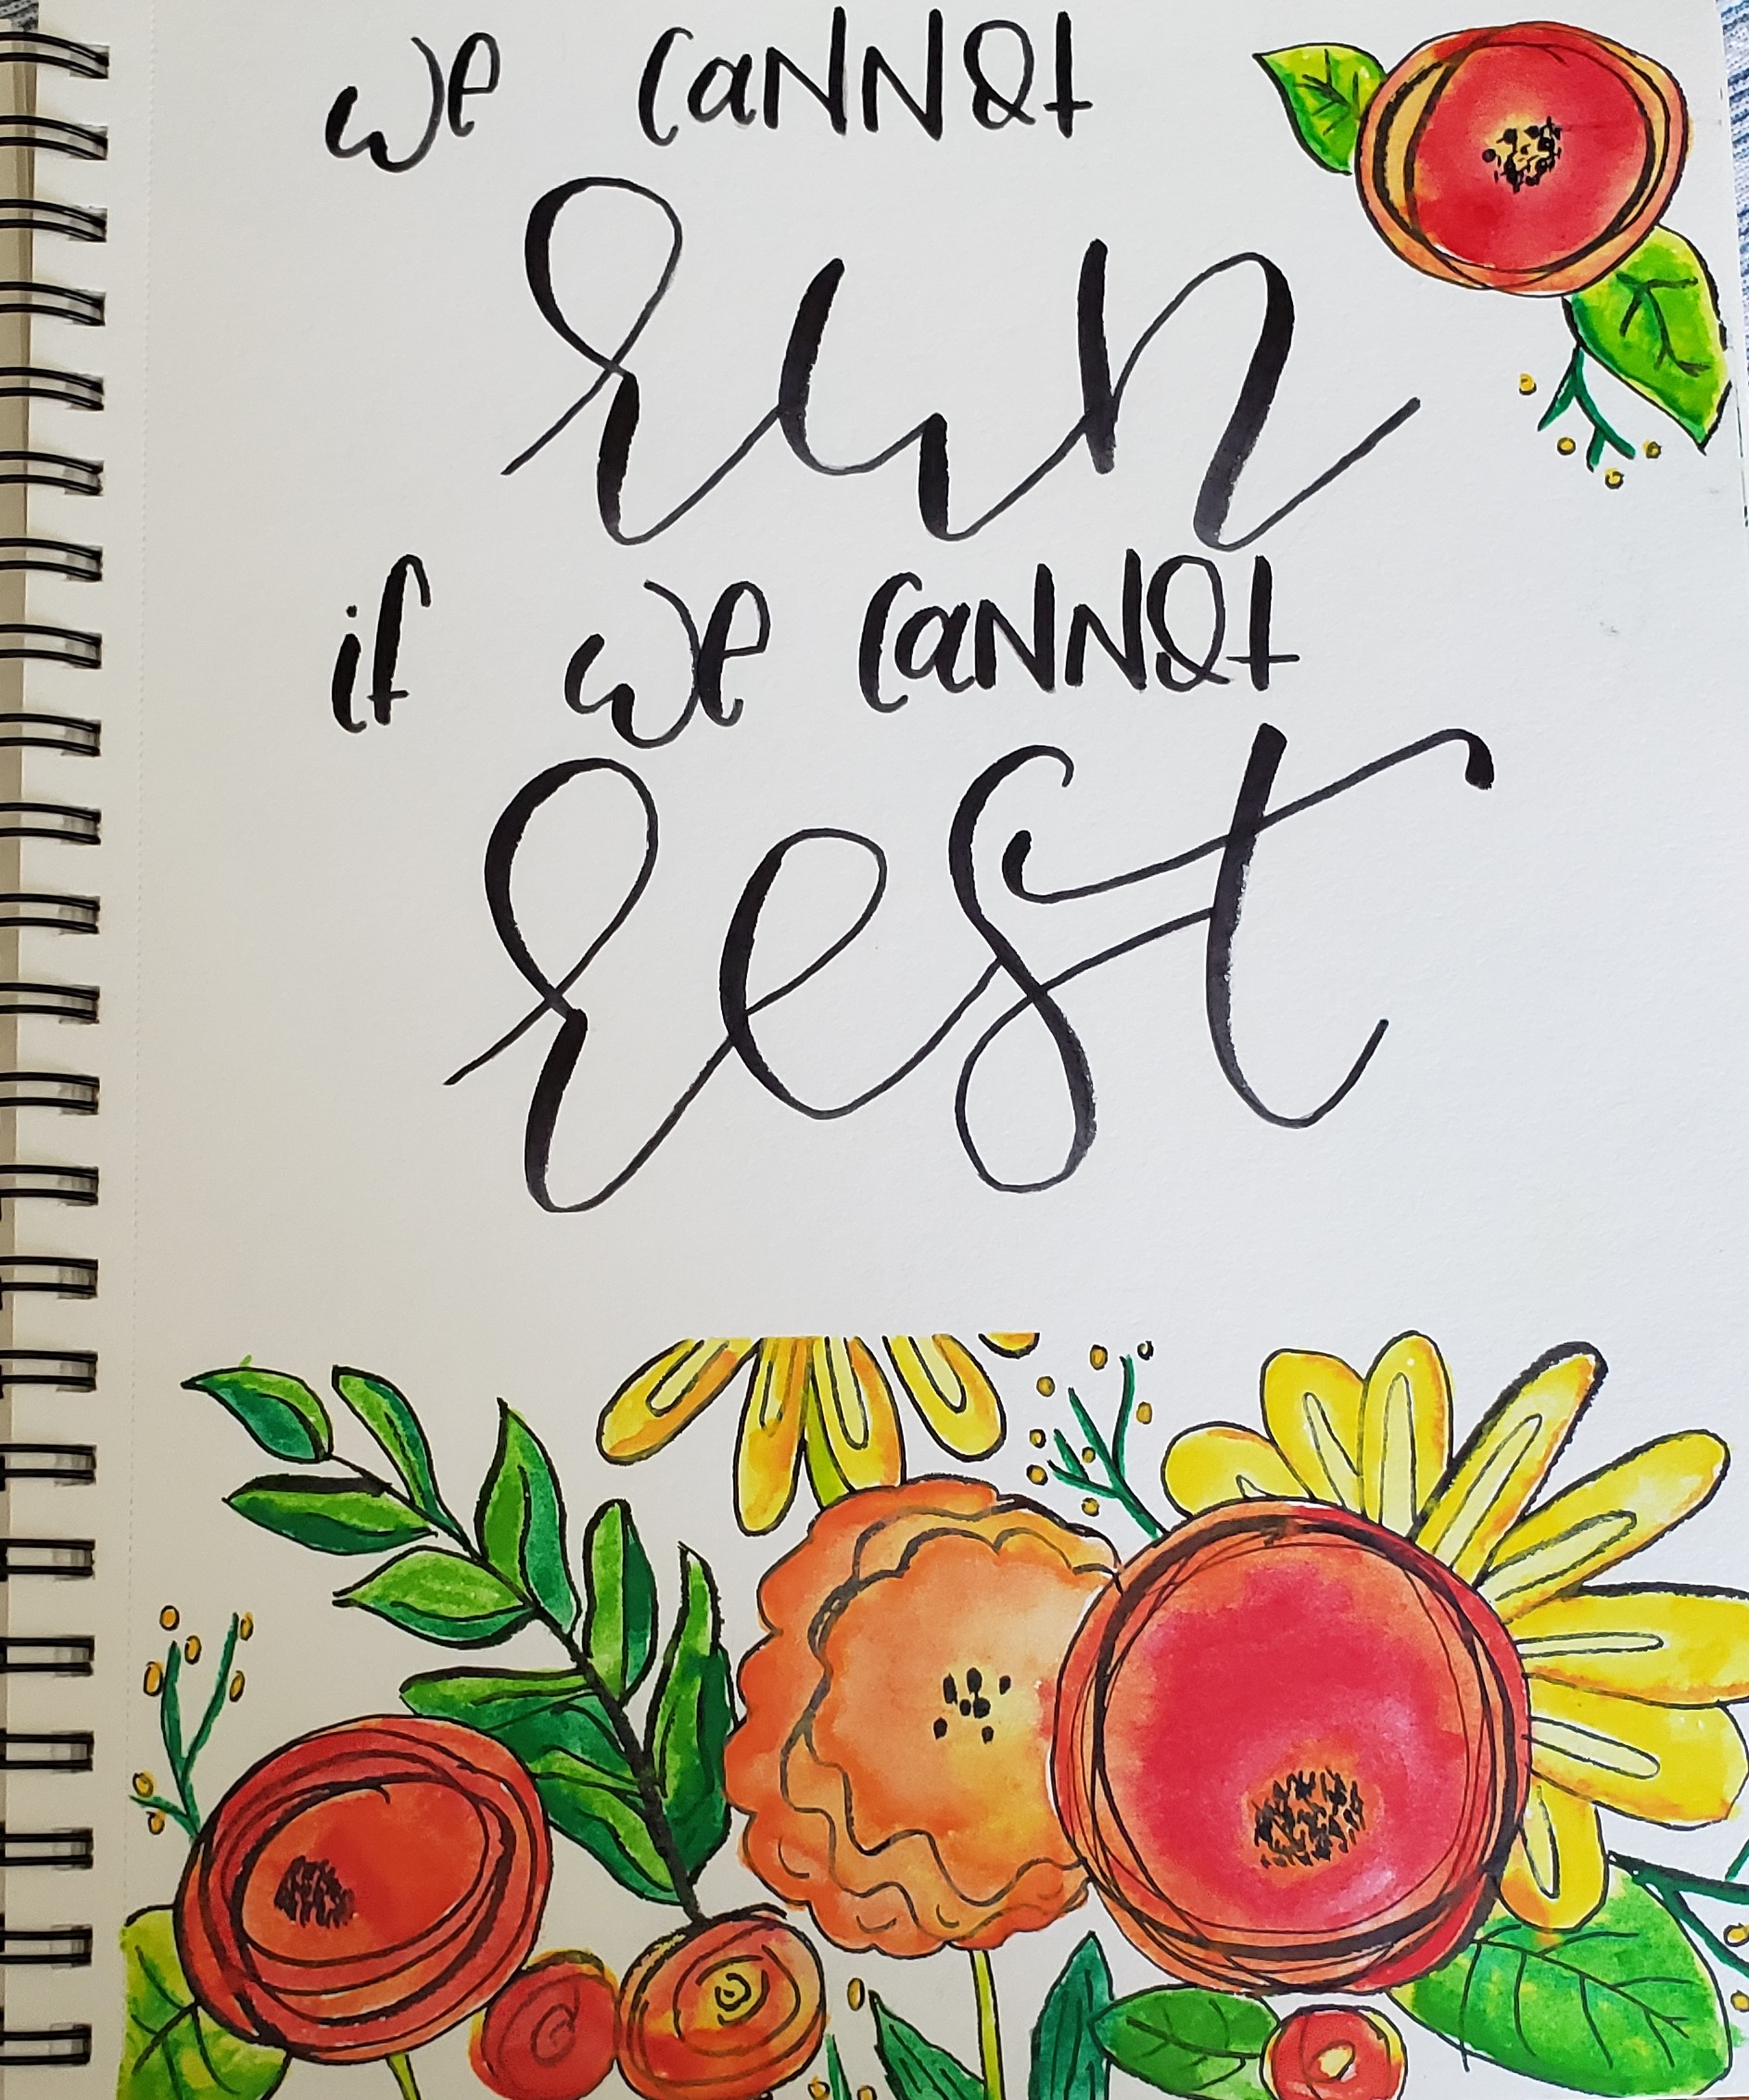 we caNNot
run
if we caNNot
rest